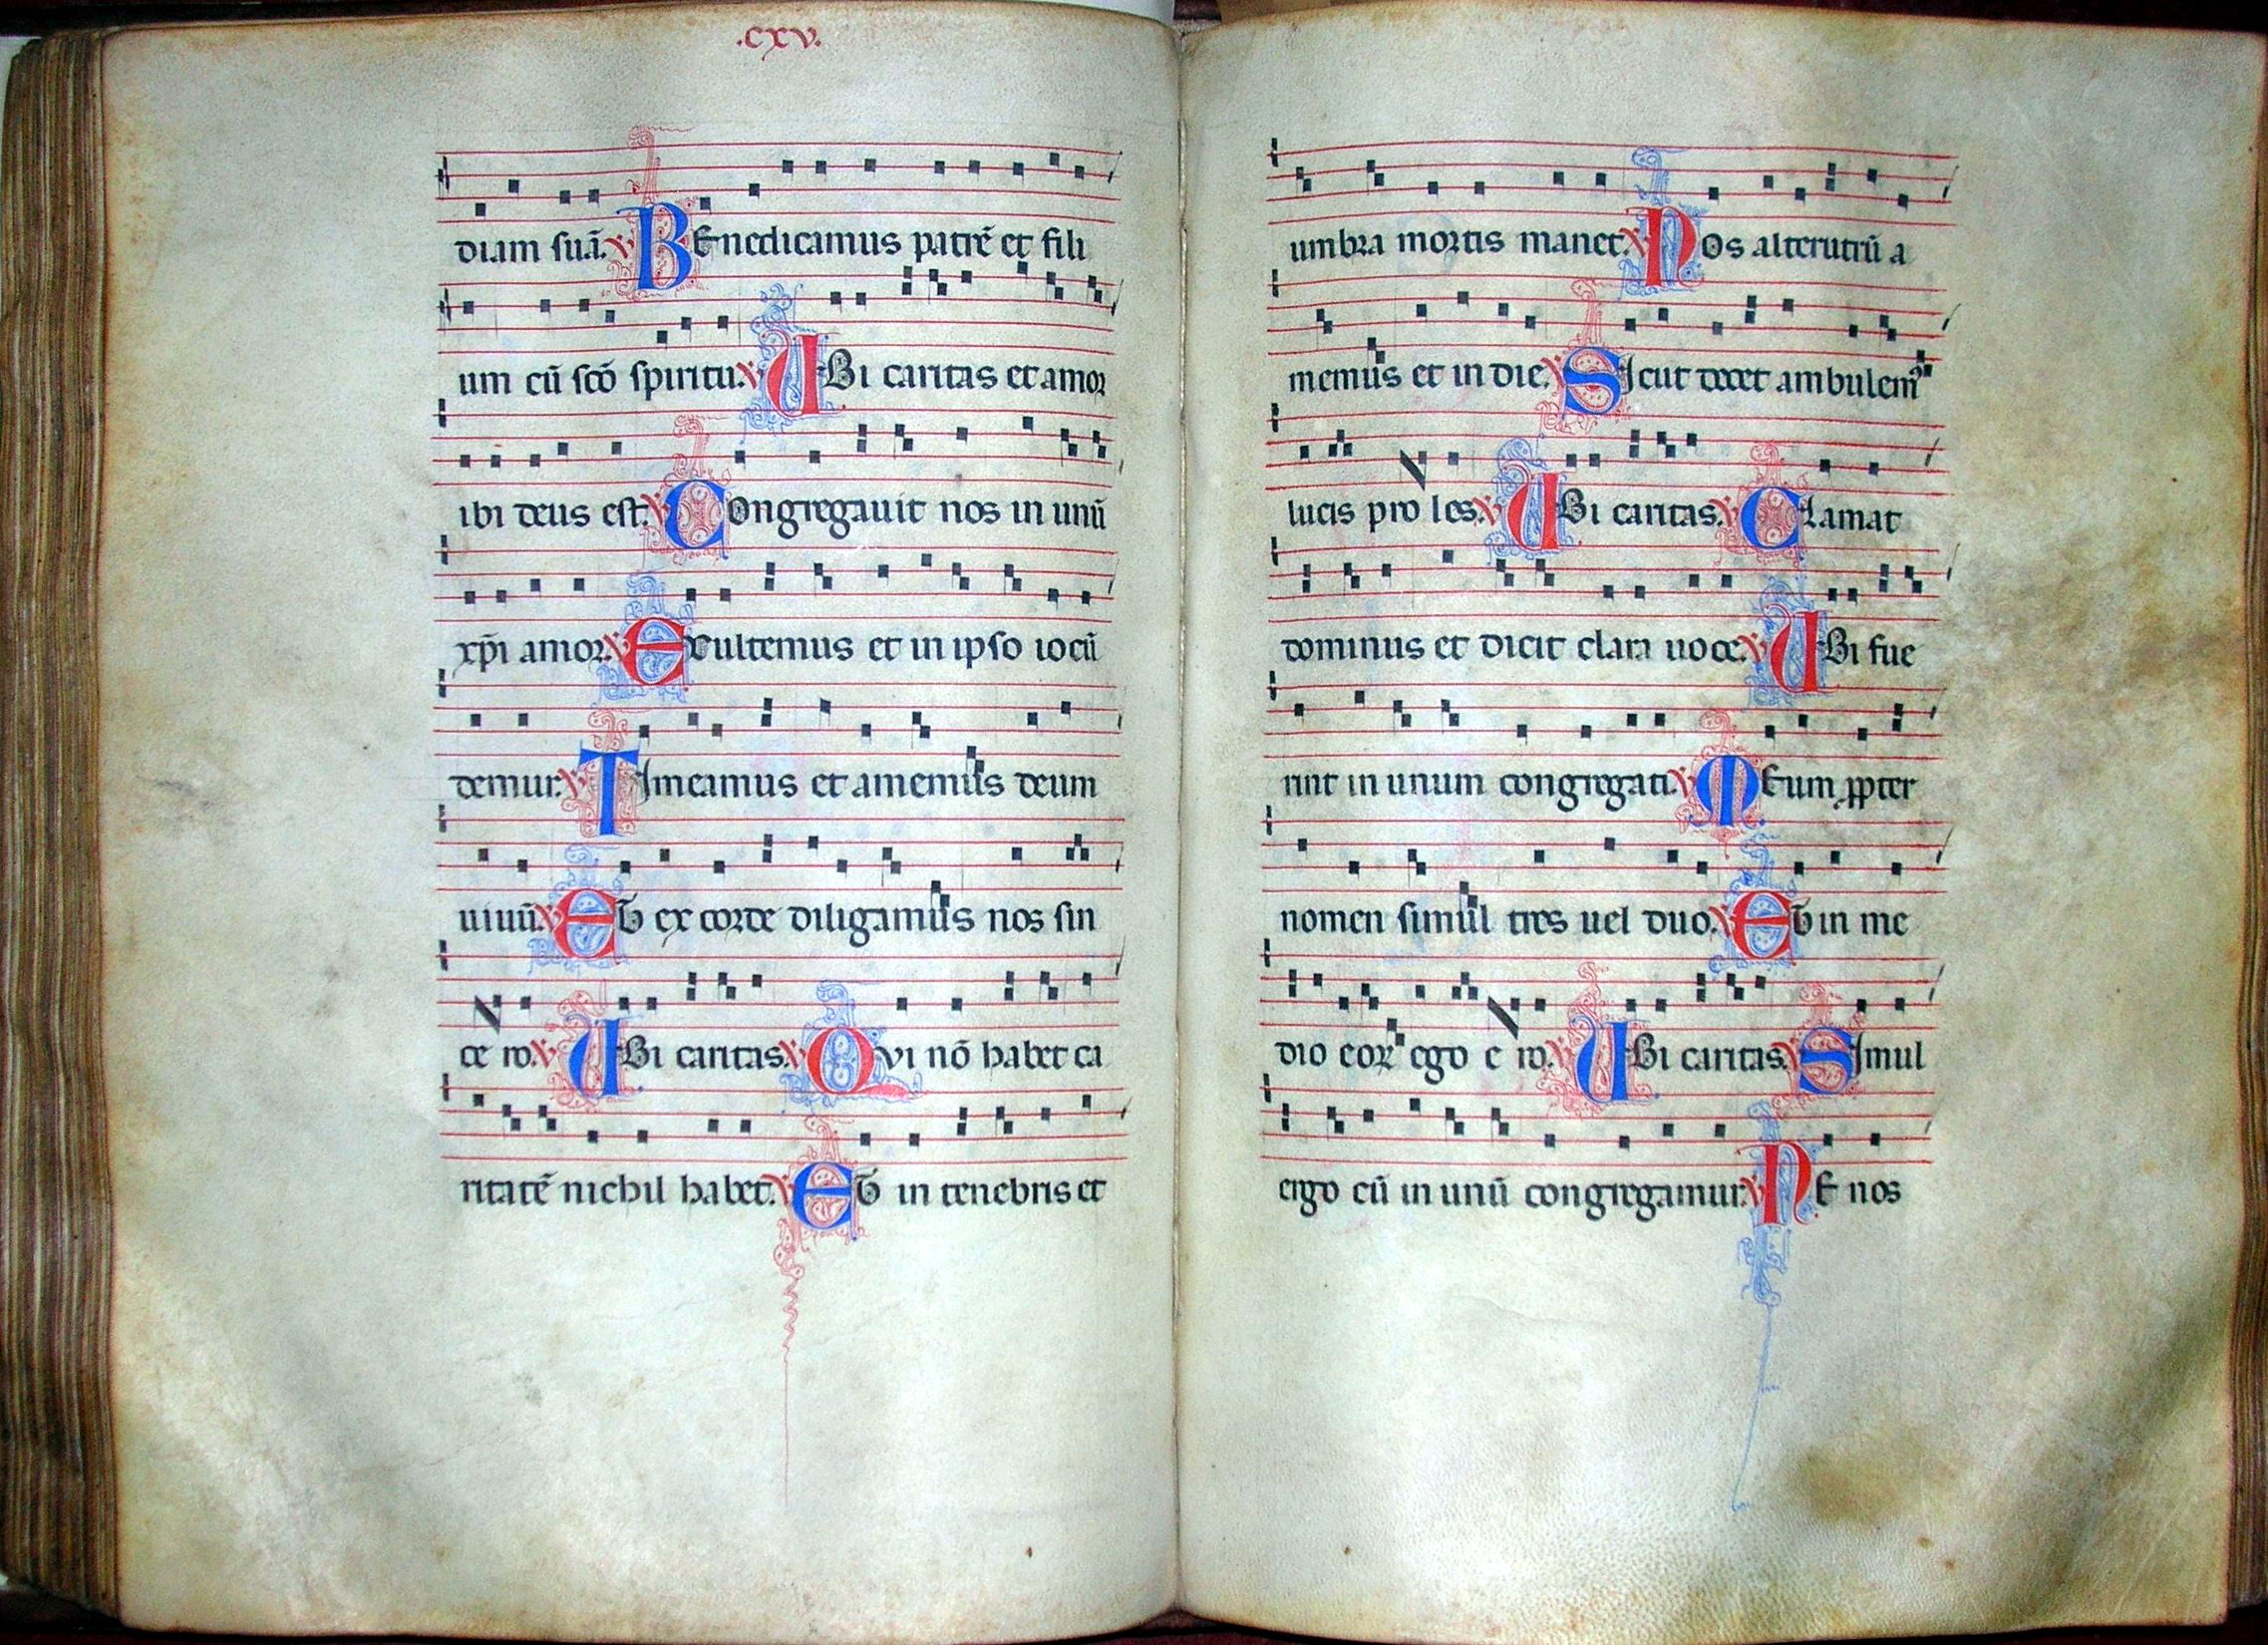 .cxv.
diam suā. v BEnedicamus patrē et fili
um cū scō spiritu. v UBi caritas et amor
ibi deus est. v COngregauit nos in unū
xpī amor. v EXultemus et in ipso iocū
demur. v TImeamus et amemus deum
uiuū. v ET ex corde diligamus nos sin
ce ro. v UBi caritas. v QVi nō habet ca
ritatē nichil habet. v ET in tenebris et
umbra mortis manet. v NOs alterutrū a
memus et in die. v SIcut decet ambulemꝰ
lucis pro les. v UBi caritas. v CLamat
dominus et dicit clara uoce. v UBi fue
rint in unum congregati. v MEum ꝓpter
nomen simul tres uel duo. v ET in me
dio eoꝝ ego e ro. v UBi caritas. v SImul
ergo cū in unū congregamur. v NE nos